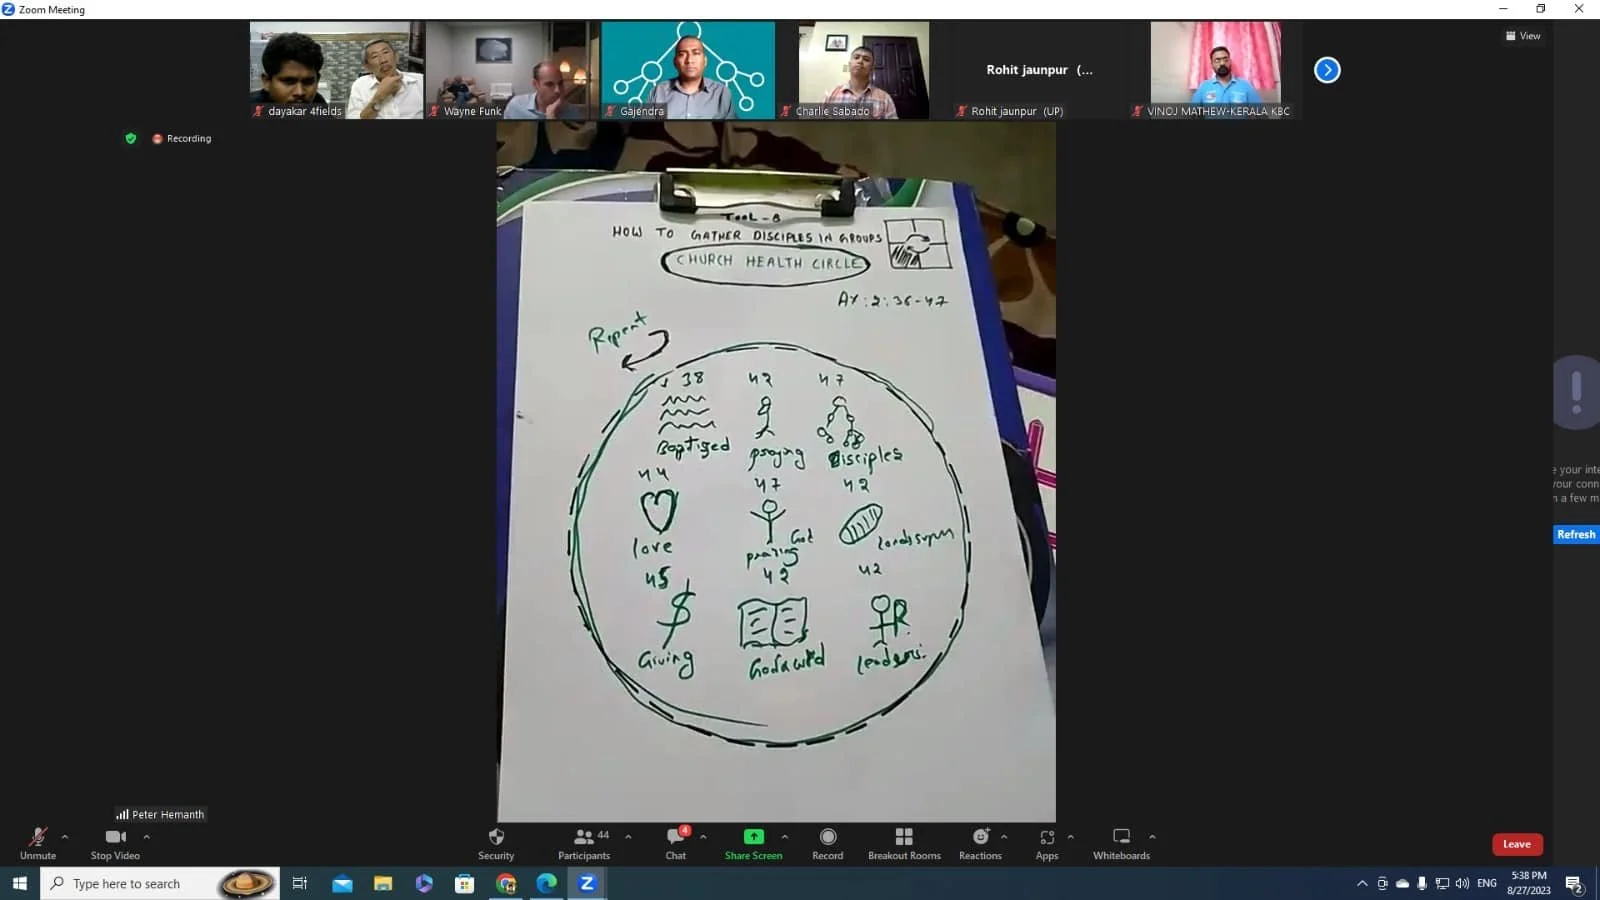 Zoom Meeting
View
dayakar 4fields
Wayne Funk
Gajendra
Charlie Sabado
Rohit jaunpur (...
Rohit jaunpur (UP)
VINOJ MATHEW-KERALA KBC
Recording
TOOL - 8
HOW TO GATHER DISCIPLES IN GROUPS
CHURCH HEALTH CIRCLE
Ax : 2 : 36-47
Repent
38 42 47
Baptized praying Disciples
44 47 42
love prazing God
45 42 42
$
Giving
e your inte
your conn
n a few m
Refresh
Peter Hemanth
Unmute
Stop Video
Security
44
Participants
4
Chat
Share Screen
Record
Breakout Rooms
Reactions
Apps
Whiteboards
Leave
Type here to search
ENG
5:38 PM
8/27/2023
2